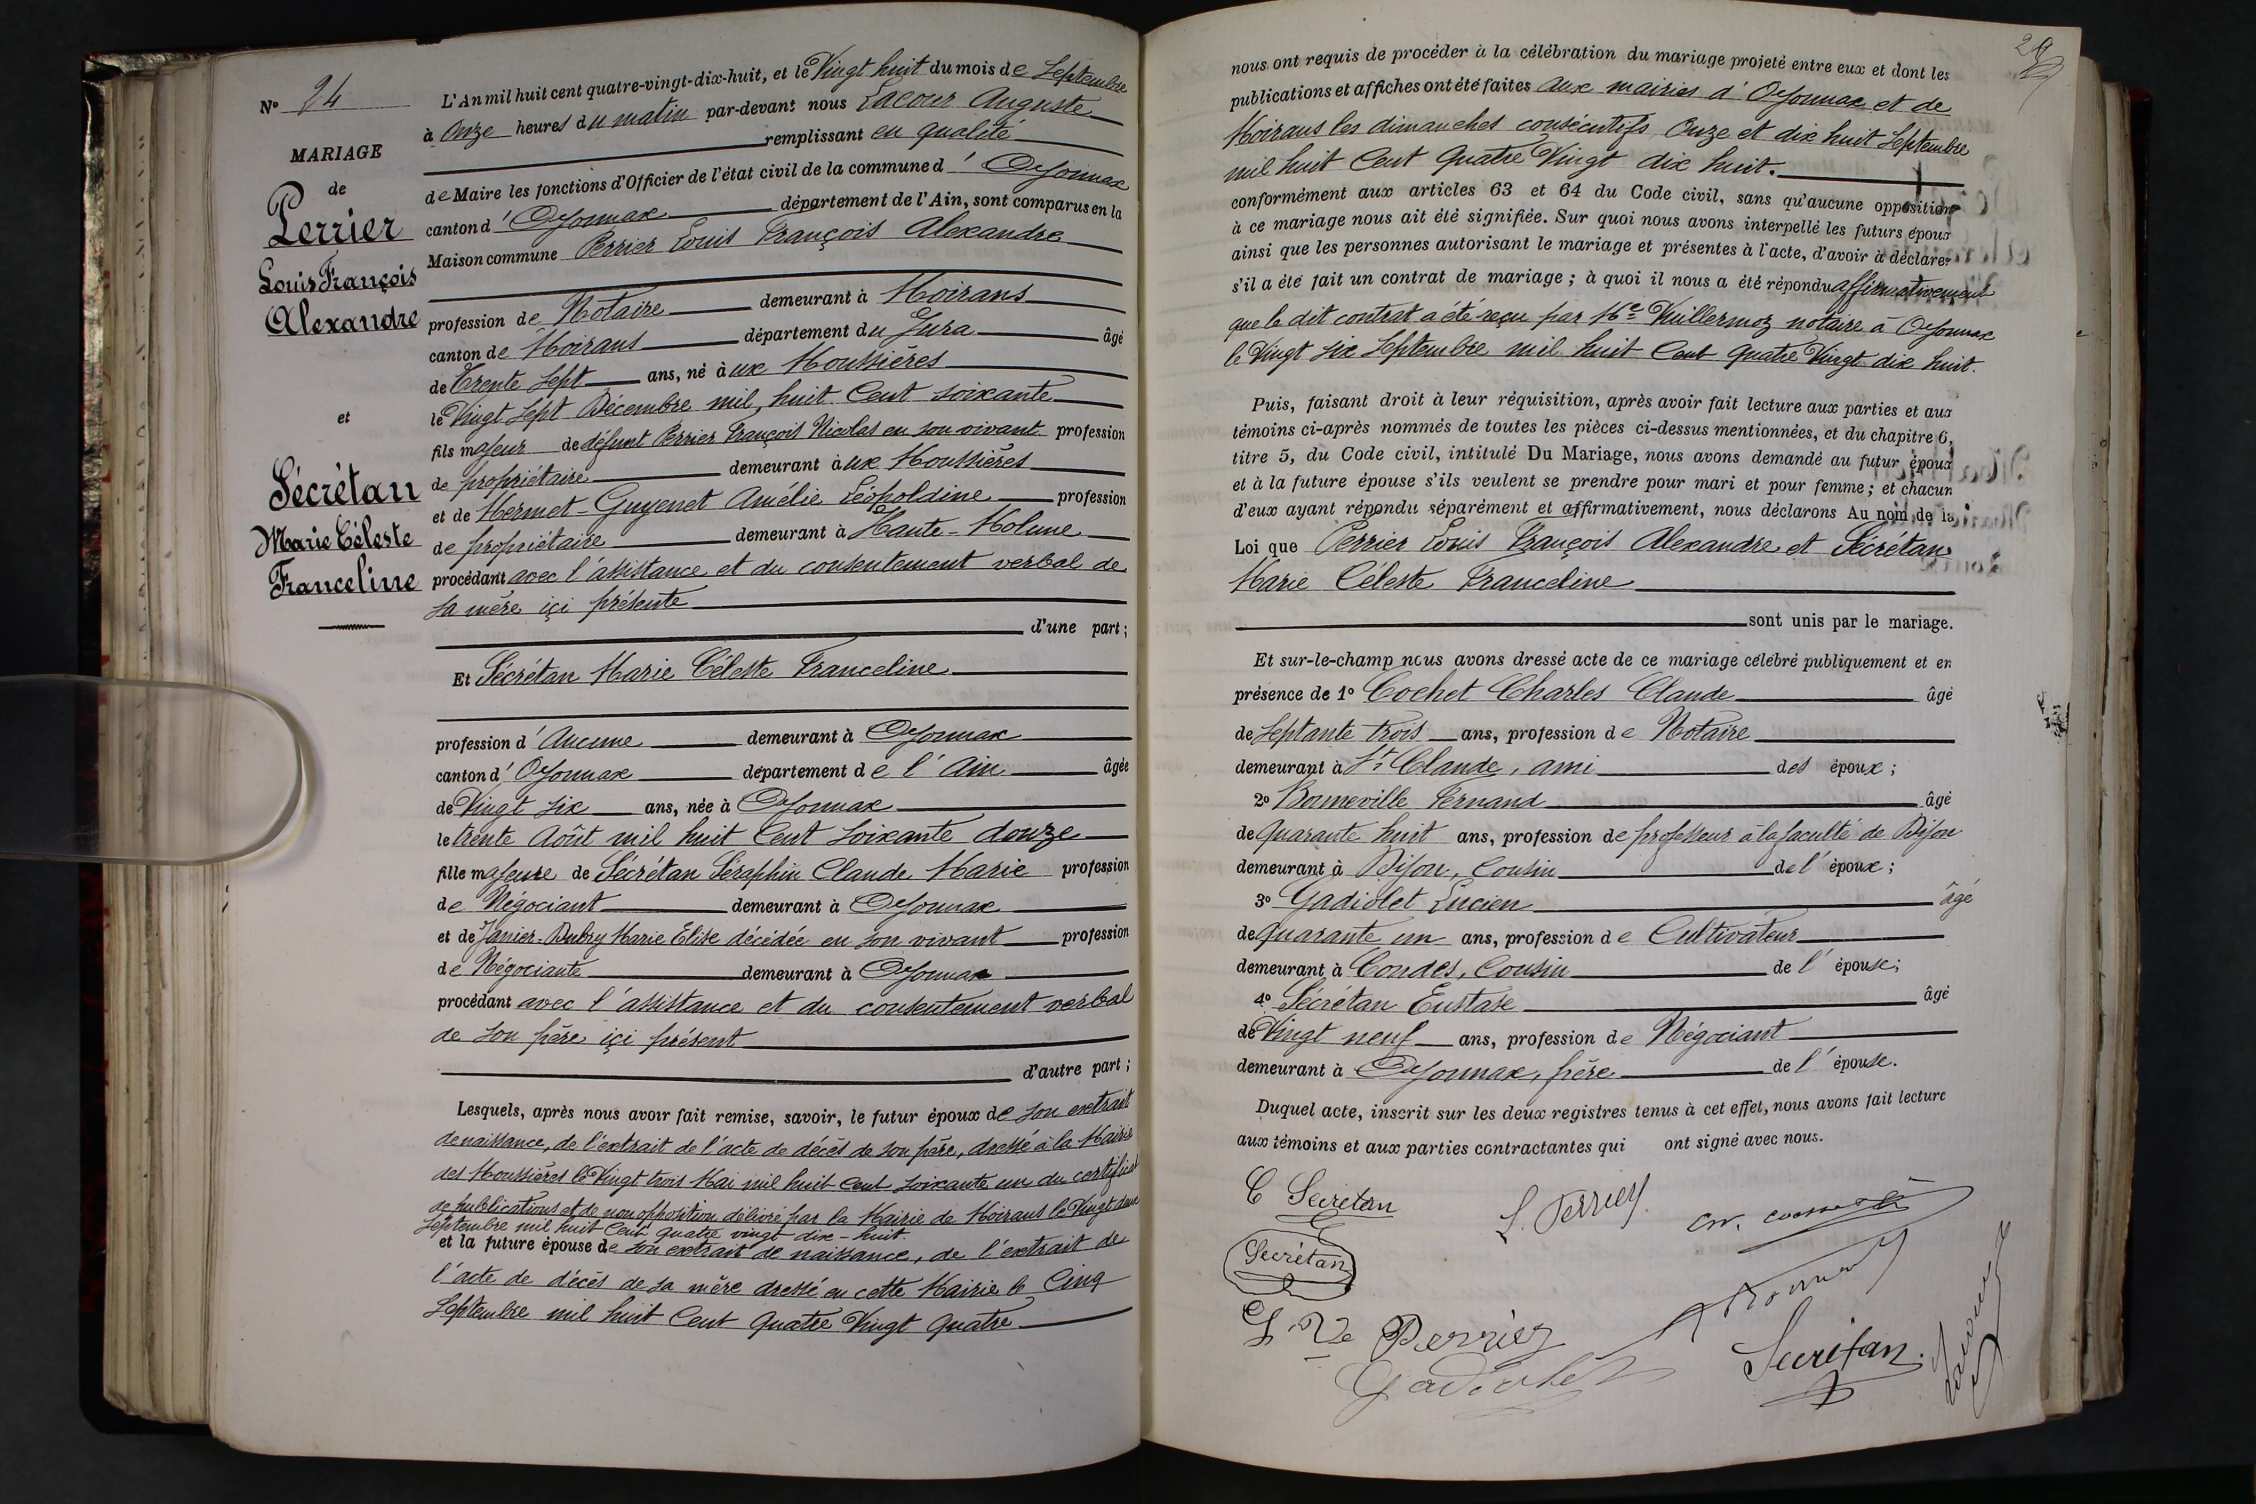 Nº 24
MARIAGE
de
Perrier
Louis François
Alexandre
et
Sécrétan
Marie Céleste
Franceline
L'An mil huit cent quatre-vingt-dix-huit, et le Vingt huit du mois de Septembre
à Onze heures du matin par-devant nous Lacour Auguste
remplissant en qualité
de Maire les fonctions d'Officier de l'état civil de la commune d'Oyonnax
canton d'Oyonnax département de l'Ain, sont comparus en la
Maison commune Perrier Louis François Alexandre
profession de Notaire demeurant à Moirans
canton de Moirans département du Jura âgé
de Trente sept ans, né à ux Moussières
le Vingt sept Décembre mil huit Cent soixante
fils majeur de défunt Perrier François Nicolas en son vivant profession
de propriétaire demeurant à ux Moussières
et de Mermet-Guyenet Amélie Léopoldine profession
de propriétaire demeurant à Haute-Molune
procédant avec l'assistance et du consentement verbal de
sa mère içi présente
d'une part;
Et Sécrétan Marie Céleste Franceline
profession d'Aucune demeurant à Oyonnax
canton d'Oyonnax département de l'Ain âgée
de Vingt six ans, née à Oyonnax
le trente Août mil huit Cent soixante douze
fille majeure de Sécrétan Séraphin Claude Marie profession
de Négociant demeurant à Oyonnax
et de Janier-Dubry Marie Elise décédée en son vivant profession
de Négociante demeurant à Oyonnax
procédant avec l'assistance et du consentement verbal
de son père içi présent
d'autre part;
Lesquels, après nous avoir fait remise, savoir, le futur époux de son extrait
de naissance, de l'extrait de l'acte de décès de son père, dressé à la Mairie
des Moussières le Vingt trois Mai mil huit Cent soixante un du certificat
de publications et de non opposition délivré par la Mairie de Moirans le Vingt deux
Septembre mil huit Cent quatre vingt dix-huit
et la future épouse de son extrait de naissance, de l'extrait de
l'acte de décès de sa mère dressé en cette Mairie le Cinq
Septembre mil huit Cent Quatre Vingt Quatre
29
nous ont requis de procéder à la célébration du mariage projeté entre eux et dont les
publications et affiches ont été faites aux mairies d'Oyonnax et de
Moirans les dimanches consécutifs Onze et dix huit Septembre
mil huit Cent Quatre Vingt dix huit.
conformément aux articles 63 et 64 du Code civil, sans qu'aucune opposition
à ce mariage nous ait été signifiée. Sur quoi nous avons interpellé les futurs époux
ainsi que les personnes autorisant le mariage et présentes à l'acte, d'avoir à déclarer
s'il a été fait un contrat de mariage; à quoi il nous a été répondu affirmativement
que le dit contrat a été reçu par Me Vuillermoz notaire à Oyonnax
le Vingt six Septembre mil huit Cent Quatre Vingt dix huit.
Puis, faisant droit à leur réquisition, après avoir fait lecture aux parties et aux
témoins ci-après nommés de toutes les pièces ci-dessus mentionnées, et du chapitre 6,
titre 5, du Code civil, intitulé Du Mariage, nous avons demandé au futur époux
et à la future épouse s'ils veulent se prendre pour mari et pour femme; et chacun
d'eux ayant répondu séparément et affirmativement, nous déclarons Au nom de la
Loi que Perrier Louis François Alexandre et Sécrétan
Marie Céleste Franceline
sont unis par le mariage.
Et sur-le-champ nous avons dressé acte de ce mariage célébré publiquement et en
présence de 1º Cochet Charles Claude âgé
de Septante trois ans, profession de Notaire
demeurant à St Claude, ami des époux;
2º Bonneville Fernand âgé
de Quarante huit ans, profession de professeur à la faculté de Dijon
demeurant à Dijon, Cousin de l'époux;
3º Gadiolet Lucien âgé
de Quarante un ans, profession de Cultivateur
demeurant à Condes, Cousin de l'épouse;
4º Sécrétan Eustase âgé
de Vingt neuf ans, profession de Négociant
demeurant à Oyonnax, frère de l'épouse.
Duquel acte, inscrit sur les deux registres tenus à cet effet, nous avons fait lecture
aux témoins et aux parties contractantes qui ont signé avec nous.
C Secretan
L. Perrier
Secrétan
Ve Perrier
Gadiolet
Secrétan